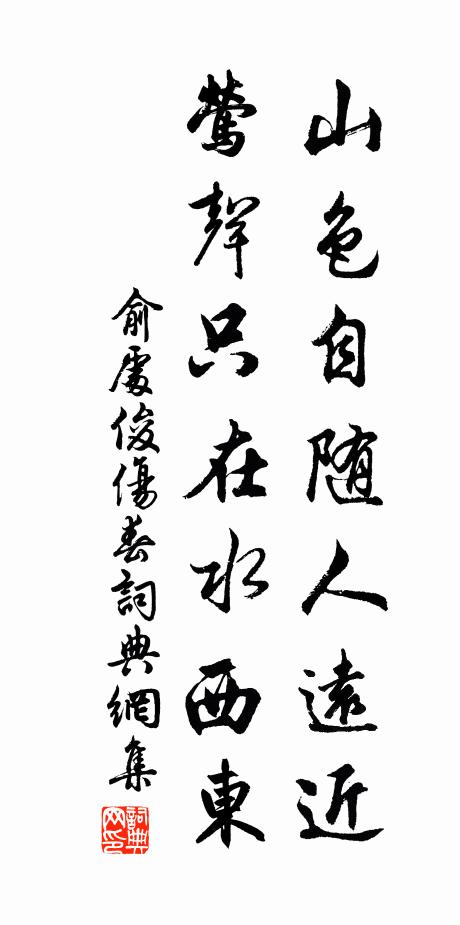 山色自随人遠近
鶯聲只在水西東
俞處俊傷春詞典網集
詞典網印